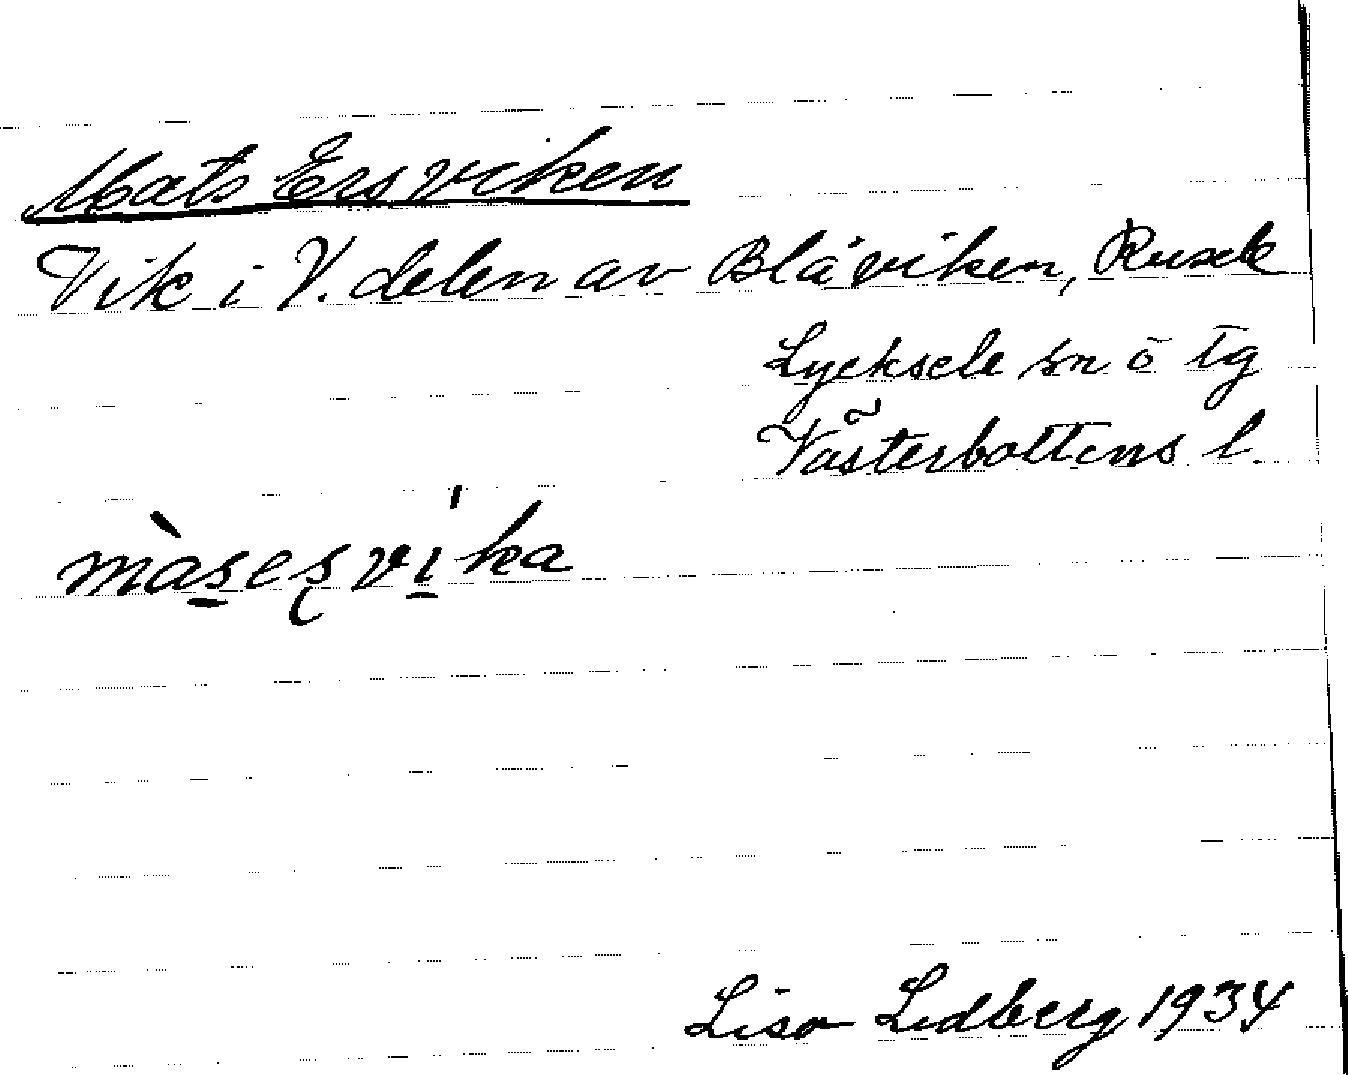 Mats Ersviken
Vik i V. delen av Blåviken, Rusele
Lycksele sn o tg
Västerbottens l.
màs̱eʂvi̱'ka
Lisa Lidberg 1934